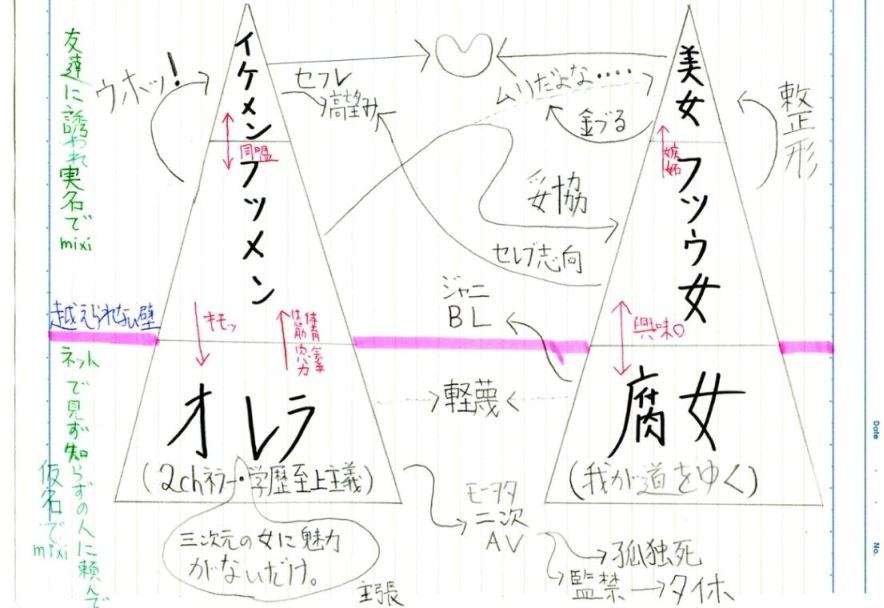 友達に誘われ実名で
mixi
越えられない壁
ネットで見ず知らずの人に頼んで
仮名で
mixi
ウホッ!
イケメン
同盟
フツメン
キモッ
オレラ
(2chネラー・学歴至上主義)
三次元の女に魅力
がないだけ。
主張
セフレ
高望み
ムリだよな・・・・
金づる
妥協
セレブ志向
ジャニ
BL
軽蔑
モーヲタ
二次
AV
孤独死
監禁→タイホ
美女
嫉妬
フツウ女
興味
腐女
(我が道をゆく)
整形
Date
No.